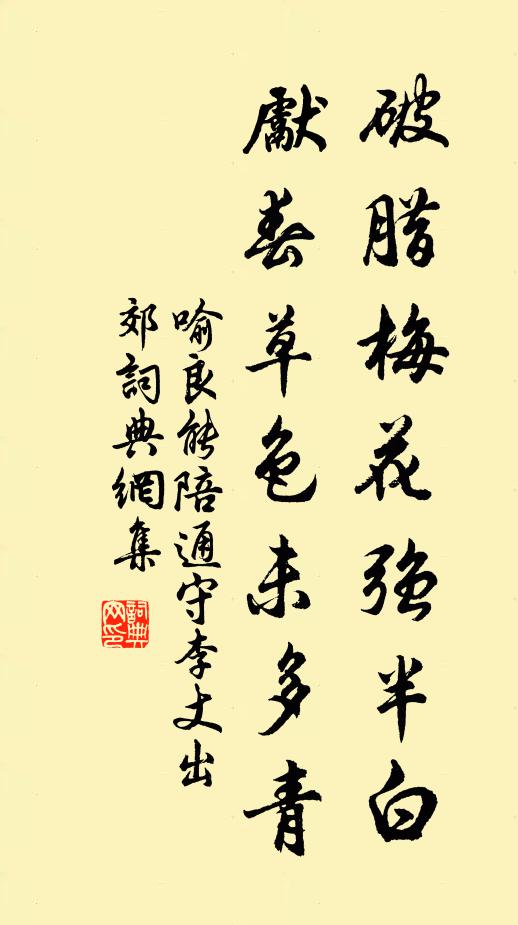 破腊梅花強半白
獻春草色未多青
喻良能陪通守李丈出
郊詞典網集
詞典
网印